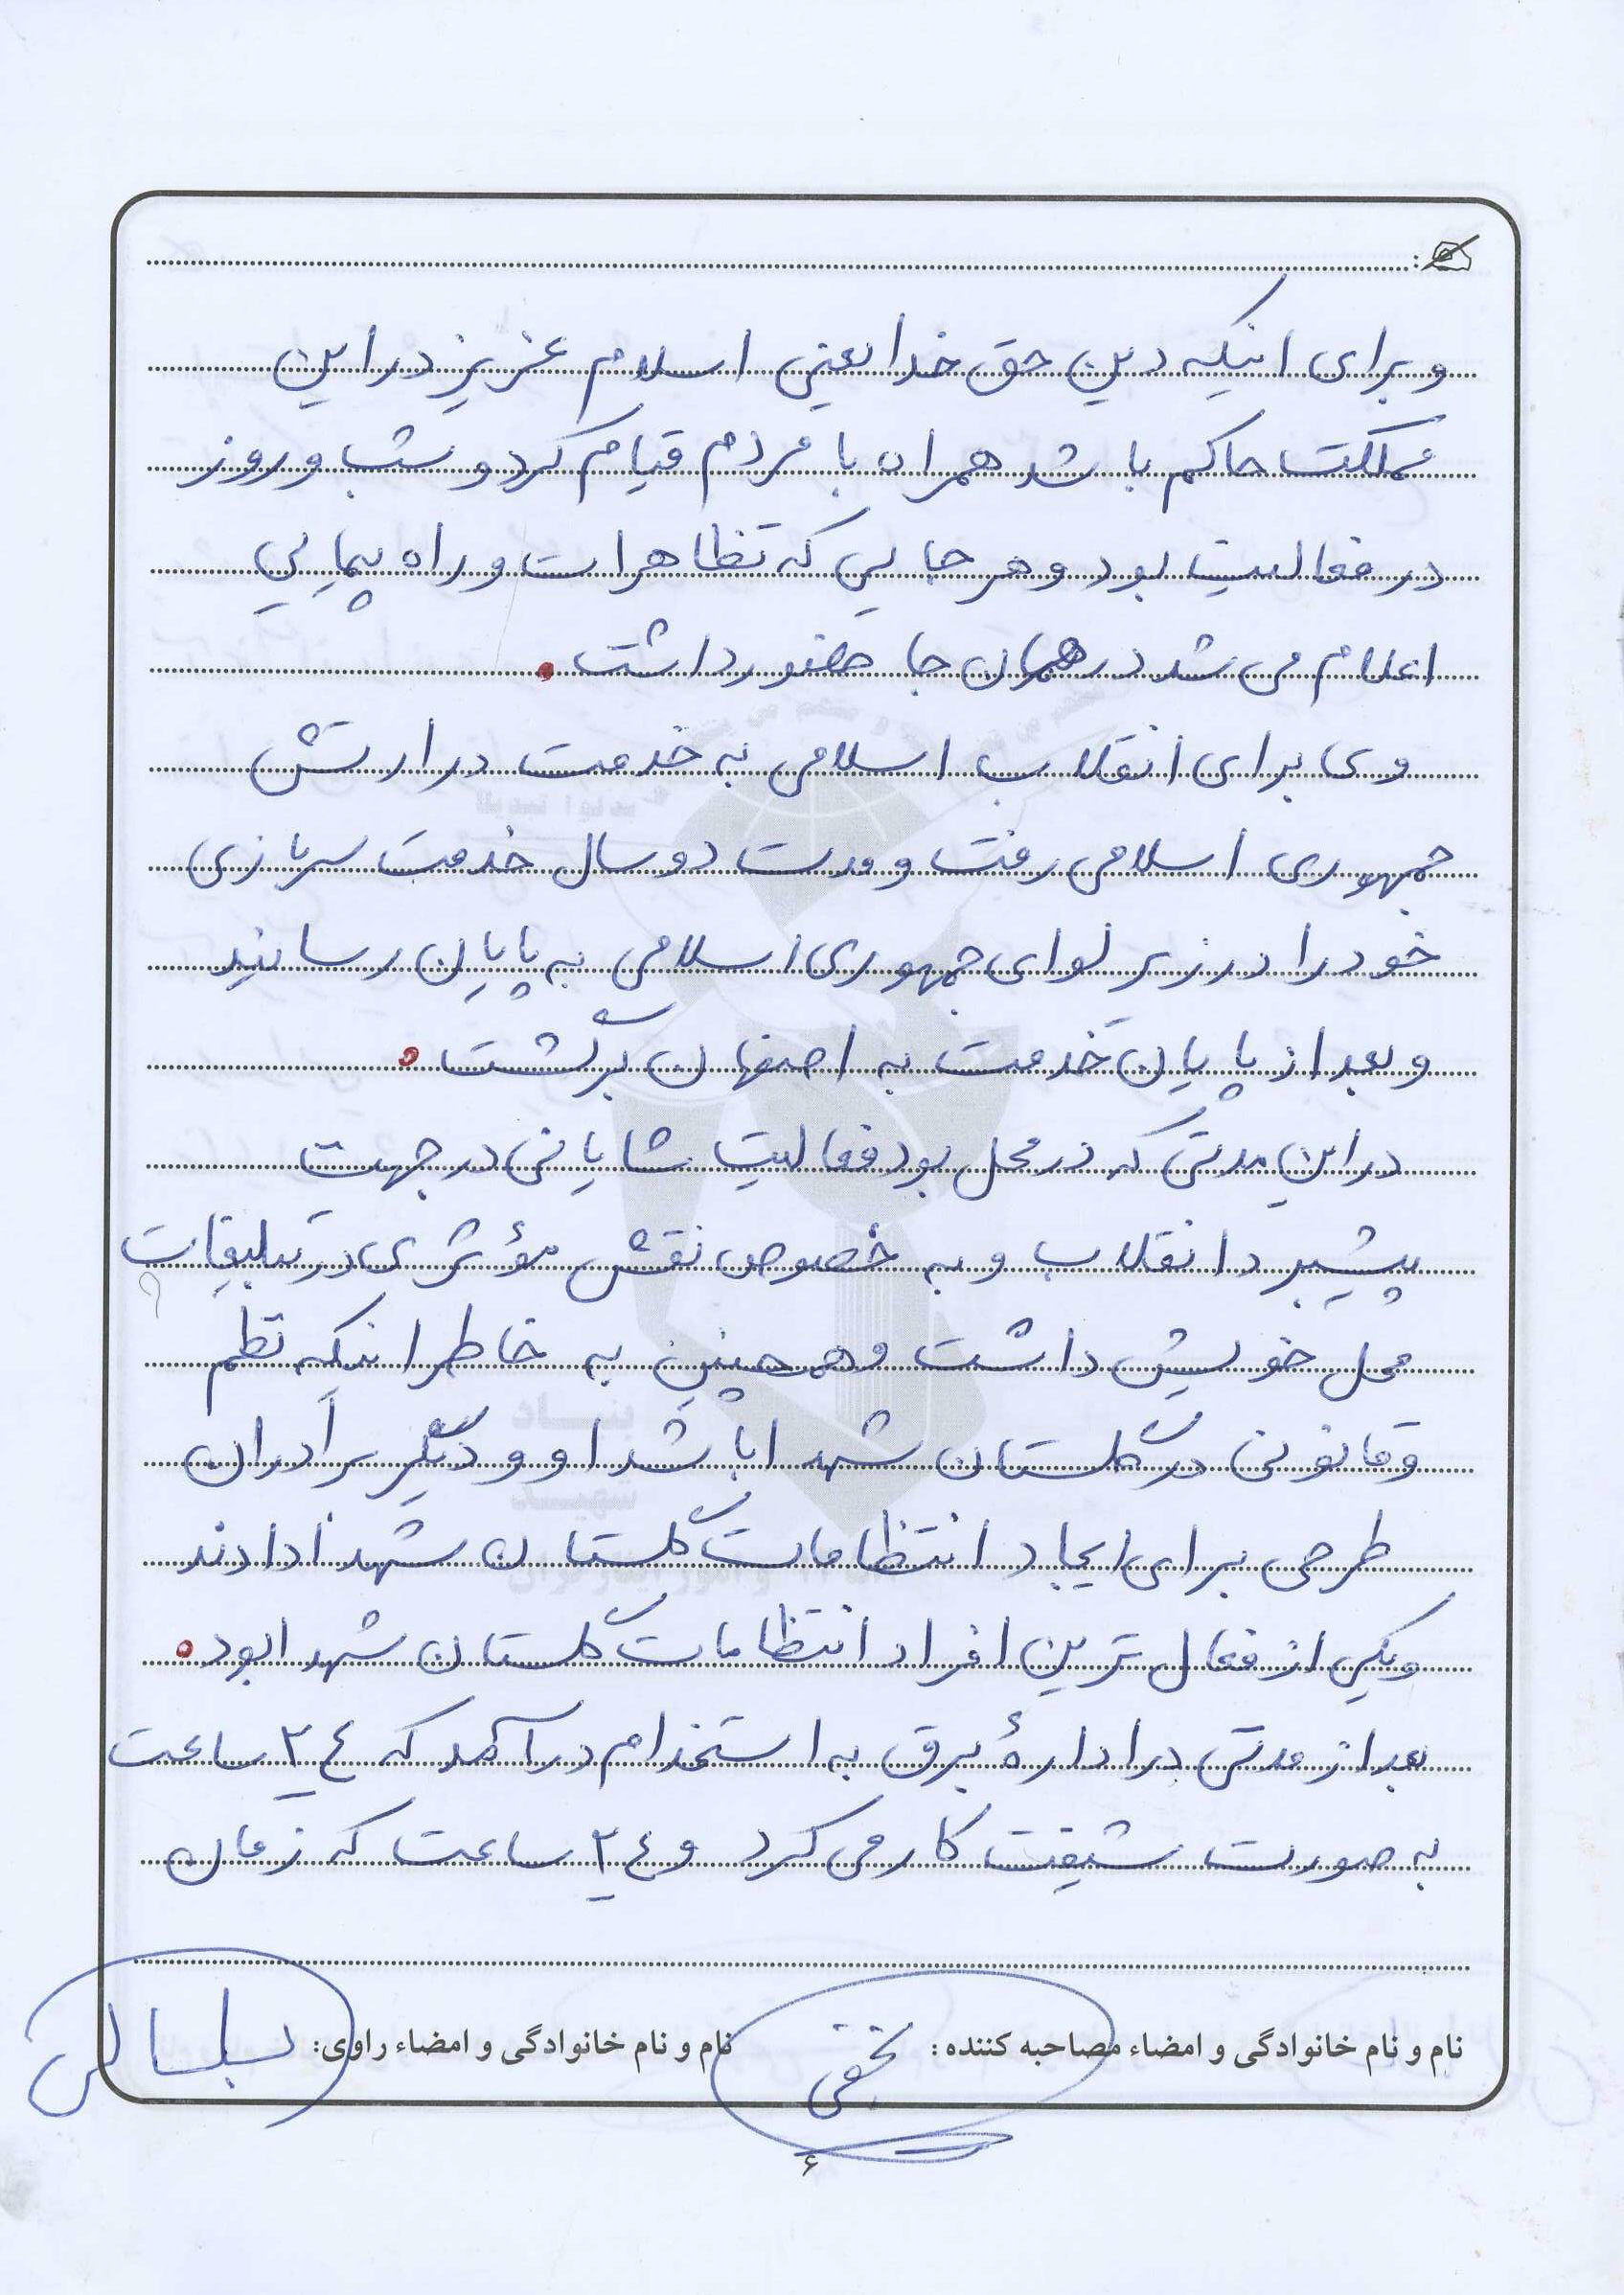 و برای اینکه دین حق خدا یعنی اسلام عزیز در این
مملکت حاکم باشد همراه با مردم قیام کرد و شب و روز
در فعالیت بود و هر جایی که تظاهرات و راه پیمایی
اعلام می شد در همان جا حضور داشت.
وی برای انقلاب اسلامی به خدمت در ارتش
جمهوری اسلامی رفت و مدت دو سال خدمت سربازی
خود را در زیر لوای جمهوری اسلامی به پایان رسانید
و بعد از پایان خدمت به اصفهان برگشت.
در این مدتی که در محل بود فعالیت شایانی در جهت
پیشبرد انقلاب و به خصوص نقش مؤثری در تبلیغات
محل خویش داشت و همچنین به خاطر اینکه نظم
و قانونی در گلستان شهدا باشد او و دیگر برادران
طرحی برای ایجاد انتظامات گلستان شهدا دادند
و یکی از فعال ترین افراد انتظامات گلستان شهدا بود.
بعد از مدتی در ادارهٔ برق به استخدام درآمد که ۲٤ ساعت
به صورت شیفت کار می کرد و ۲٤ ساعت که زمان
نام و نام خانوادگی و امضاء مصاحبه کننده: نام و نام خانوادگی و امضاء راوی:
۶